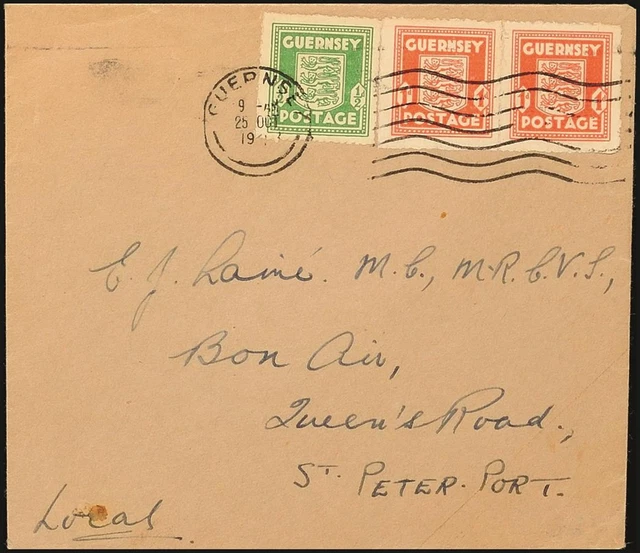 GUERNSEY ½ POSTAGE
GUERNSEY 1 D POSTAGE
GUERNSEY 1 D POSTAGE
GUERNSEY
9 - AM
25 OCT
19
E. J. Lainé. M.C., M.R.C.V.S.,
Bon Air,
Queen's Road.,
ST. PETER-PORT.
Local.